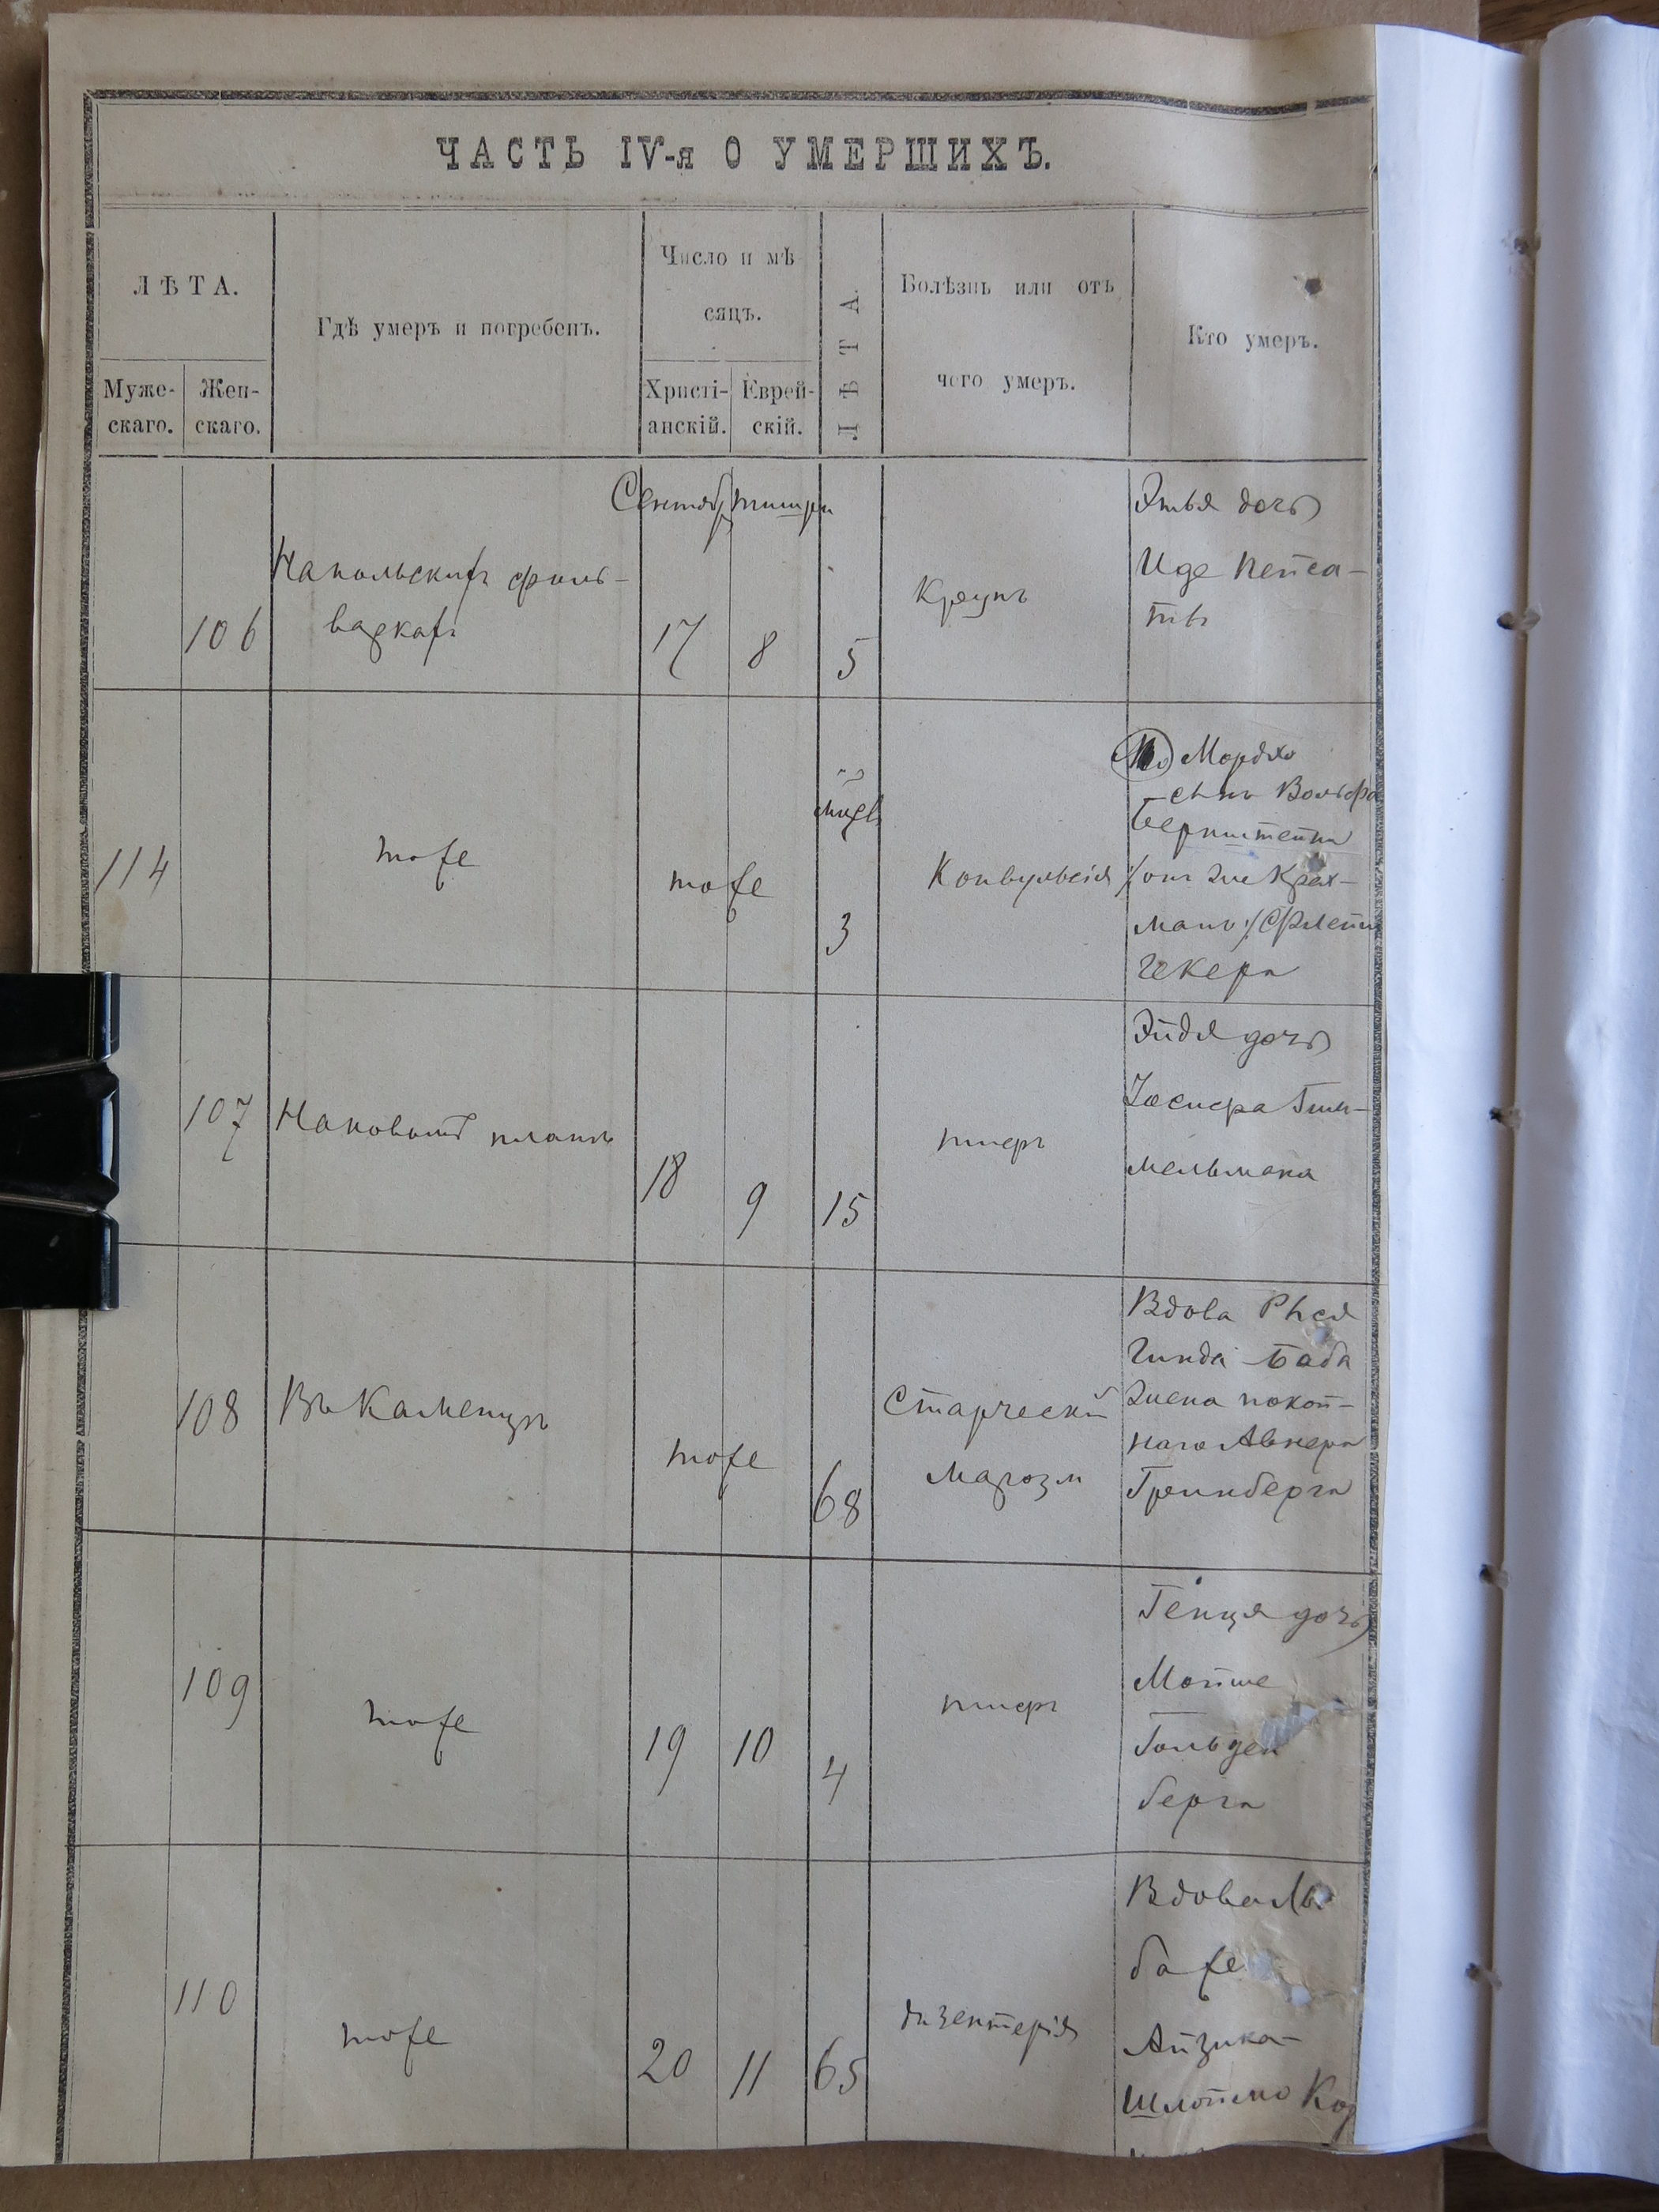 ЧАСТЬ IV-я О УМЕРШИХЪ.
ЛѢТА.
Муже-
скаго.
Жен-
скаго.
Гдѣ умеръ и погребенъ.
Число и мѣ
сяцъ.
Христі-
анскій.
Еврей-
скій.
ЛѢТА.
Болѣзнь или отъ
чего умеръ.
Кто умеръ.
Сентяб тишри
106
Напольских фоль-
варках
17
8
5
Крупъ
Этья дочь
Иде
114
тоже
тоже
3
Конвульсія
Мордхо
сынъ Вольфа
Бернштейна
онъ же Крах-
маль
107
18
9
15
тифъ
Эйдя дочь
Іосифа Гим-
мельмана
108
Въ Каменцѣ
тоже
68
Старческій
маразм
Вдова Рыся
Гинда Баба
жена покой-
наго Авнера
Гринберга
109
тоже
19
10
4
тифъ
Генця дочь
Мойше
Гольден
берга
110
тоже
20
11
65
дизентерія
Вдова
Айзика-
Шлоймо